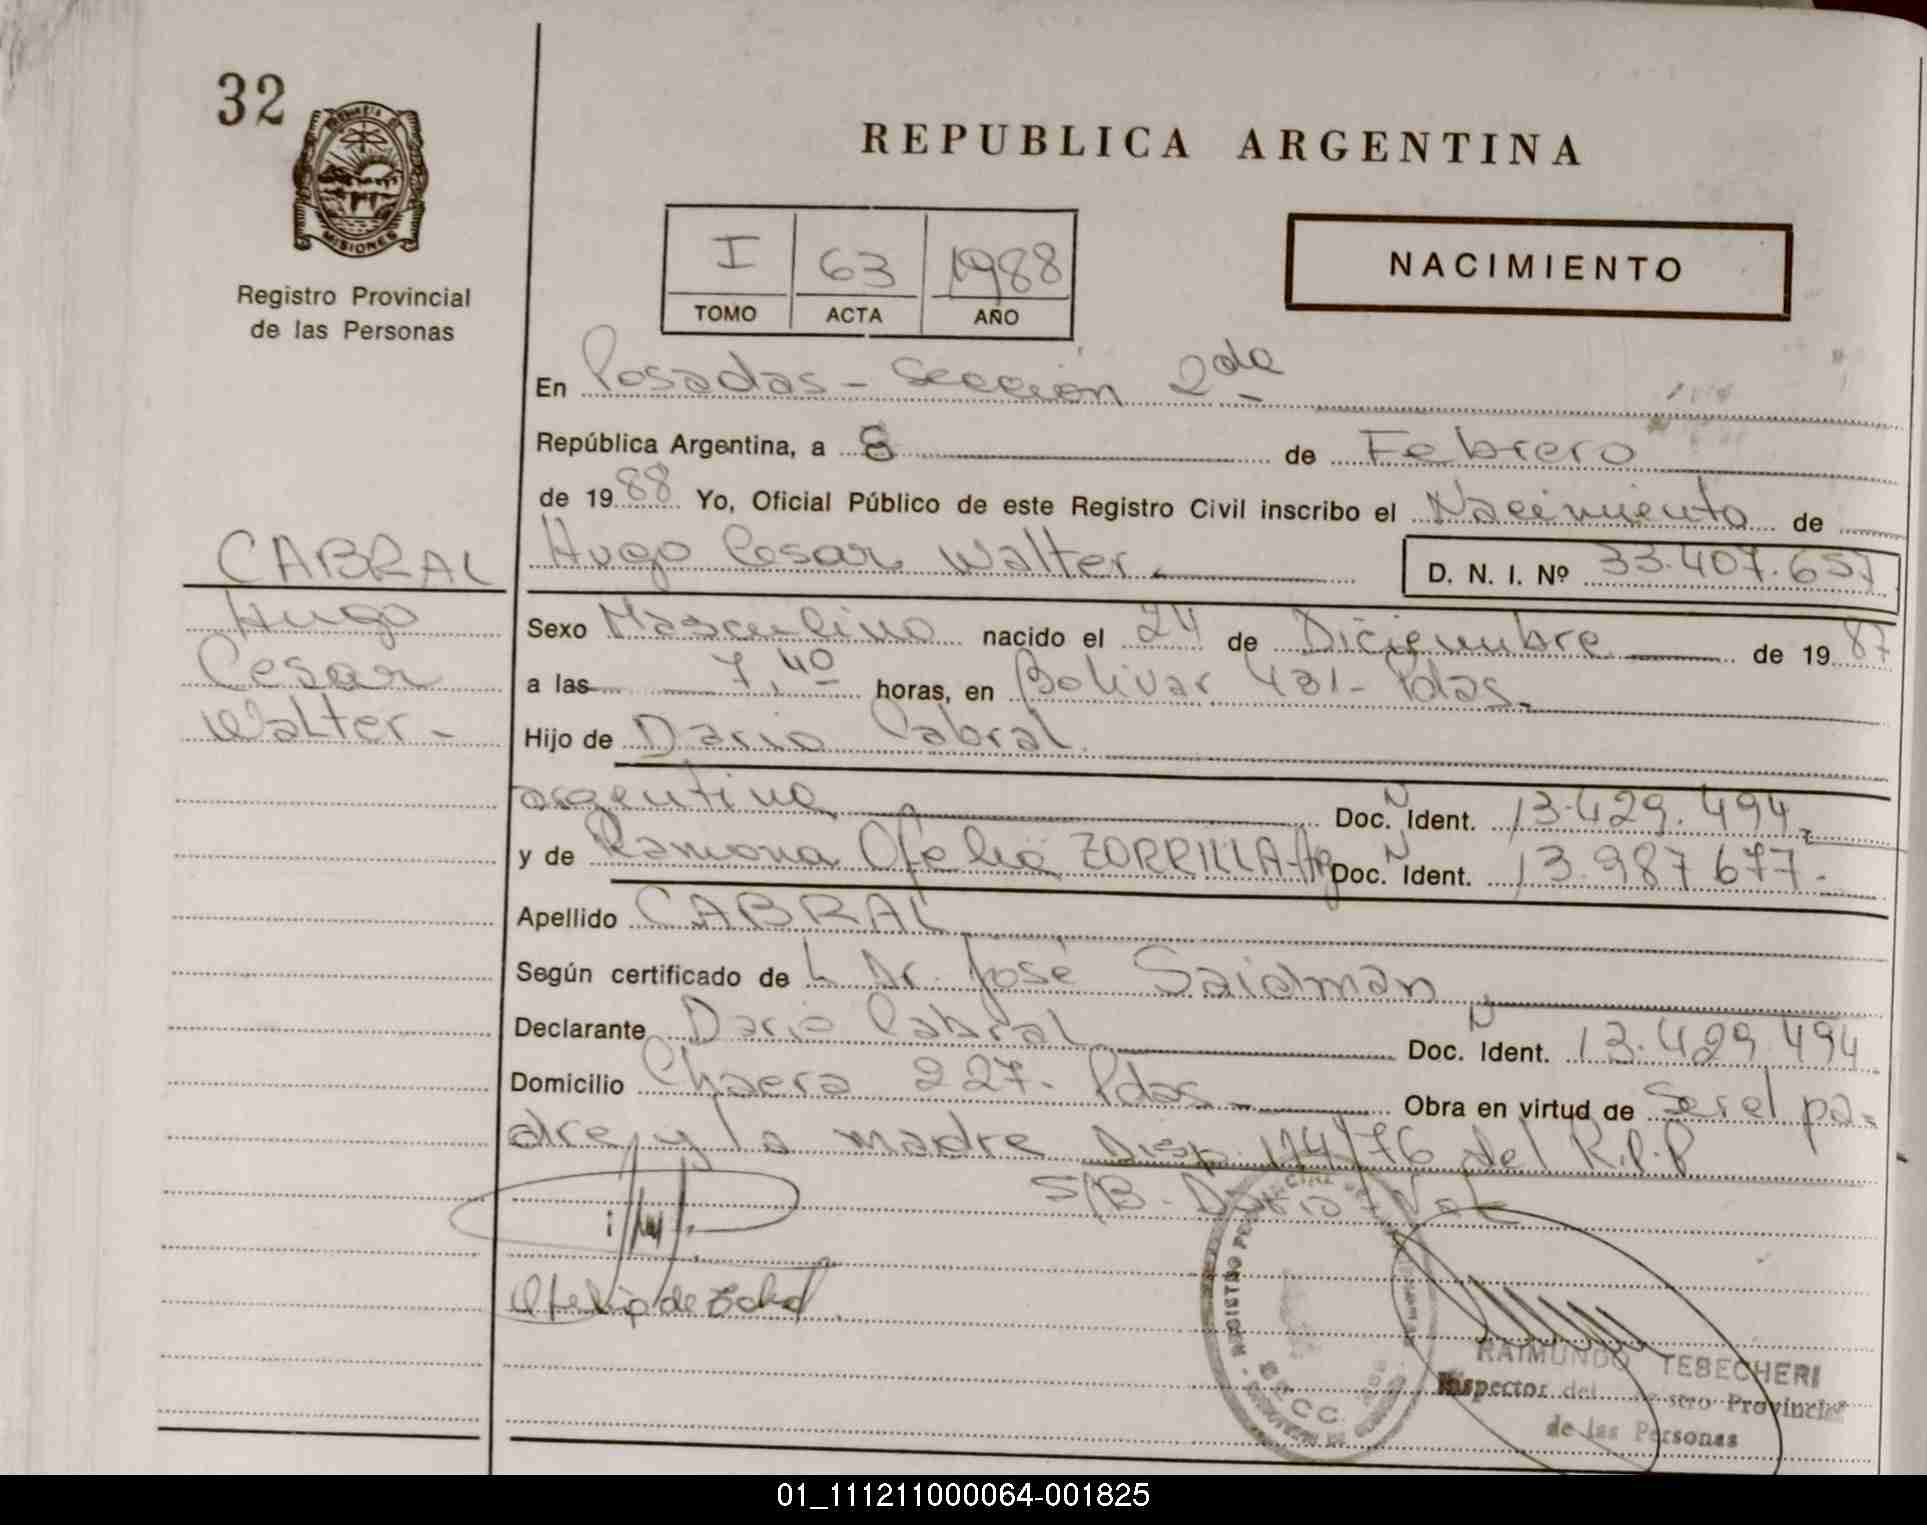 32
REPUBLICA ARGENTINA
MISIONES
Registro Provincial
de las Personas
I 63 1988
TOMO ACTA AÑO
NACIMIENTO
En Posadas - Sección 2da -
República Argentina, a 8 de Febrero
de 1988 Yo, Oficial Público de este Registro Civil inscribo el Nacimiento de
Hugo Cesar Walter D. N. I. Nº 33.407.657
CABRAL
Hugo
Cesar
Walter -
Sexo Masculino nacido el 24 de Diciembre de 1987
a las 7,40 horas, en Bolivar 431 - Pdas.
Hijo de Dario Cabral
argentina Doc. N Ident. 13.429.494
y de Ramona Ofelia ZORRILLA - Arg Doc. N Ident. 13.987677.
Apellido CABRAL
Según certificado de L Dr. José Saidman
Declarante Dario Cabral Doc. N Ident. 13.429.494
Domicilio 227 - Pdas. Obra en virtud de ser el pa-
dre, y la madre Disp. 174/76 del R.P.P
S/B - Dario
SECC
RAIMUNDO TEBECHERI
Inspector del Provincial
de las Personas
01_111211000064-001825